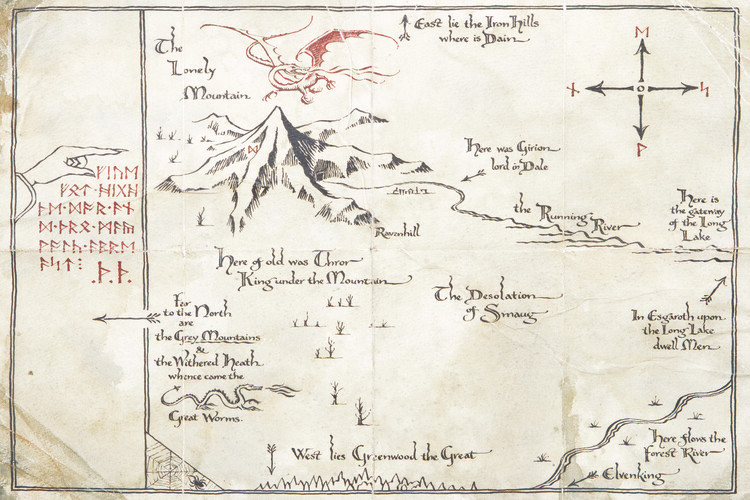 The
Lonely
Mountain
East lie the Iron Hills
where is Dain
ᛖ
ᚾ
ᛋ
ᚹ
ᛞ
Here was Girion
lord in Dale
the Running River
Here is
the gateway
of the Long
Lake
Ravenhill
ᚠᛁᚢᛖ
ᚠᛟᛏ·ᚻᛁᚷᚻ
ᚦᛖ·ᛞᚩᚱ·ᚫᚾ
ᛞ·ᚦᚱᛖ·ᛗᚫᚣ
ᚹᚩᛚᚳ·ᚫᛒᚱᛖ
ᚫᛋᛏ⁝
.ᚦ.ᚦ.
Here of old was Thror
King under the Mountain
The Desolation
of Smaug
Far
to the North
are
the Grey Mountains
&
the Withered Heath
whence came the
Great Worms.
In Esgaroth upon
the Long Lake
dwell Men
Here flows the
Forest River
West lies Greenwood the Great
Elvenking